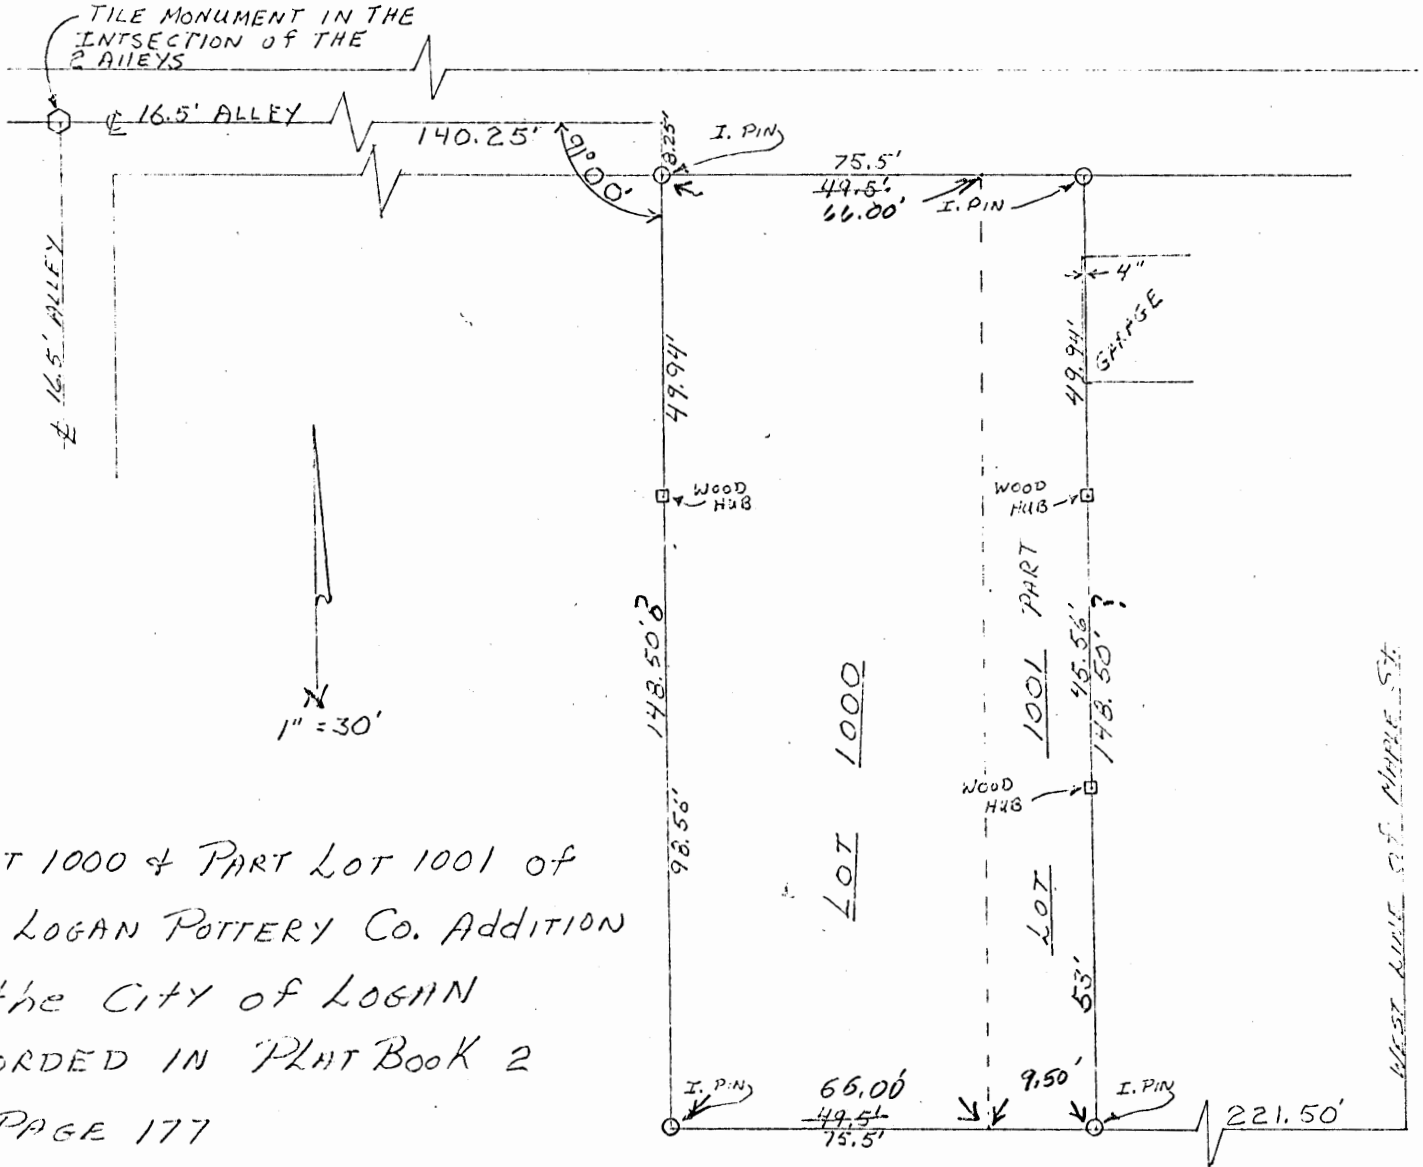 TILE MONUMENT IN THE
INTSECTION of THE
2 AllEYS
℄ 16.5' ALLEY
140.25'
91°00'
8.25'
I. PIN
75.5'
49.5'
66.00'
I. PIN
℄ 16.5' ALLEY
4"
GARAGE
49.94'
49.94'
WOOD
HUB
WOOD
HUB
148.50'?
98.56'
LOT 1000
LOT 1001 PART
45.56'
148.50'?
WOOD
HUB
53'
WEST LINE of MAPLE St.
N
1" = 30'
T 1000 & PART LOT 1001 of
LOGAN POTTERY Co. AddITION
the CITY of LOGAN
ORDED IN PLAT BOOK 2
PAGE 177
I. PIN
66.00'
49.5'
75.5'
9.50'
I. PIN
221.50'